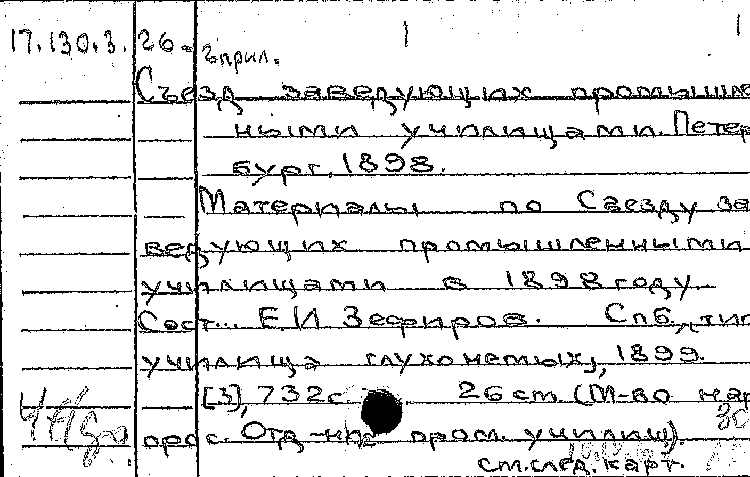 17.130.3. 26-2прил.
Съезд заведующих промышлен
ными училищами. Петер
бург. 1898.
Материалы по Съезду за
ведующих промышленными
училищами в 1898 году
Сост. Е.И Зефиров. Спб, тип.
училища глухонемых, 1899.
[3], 732с. 26 см. (М-во нар
прос. Отд-ние пром. училищ).
см.след. карт.